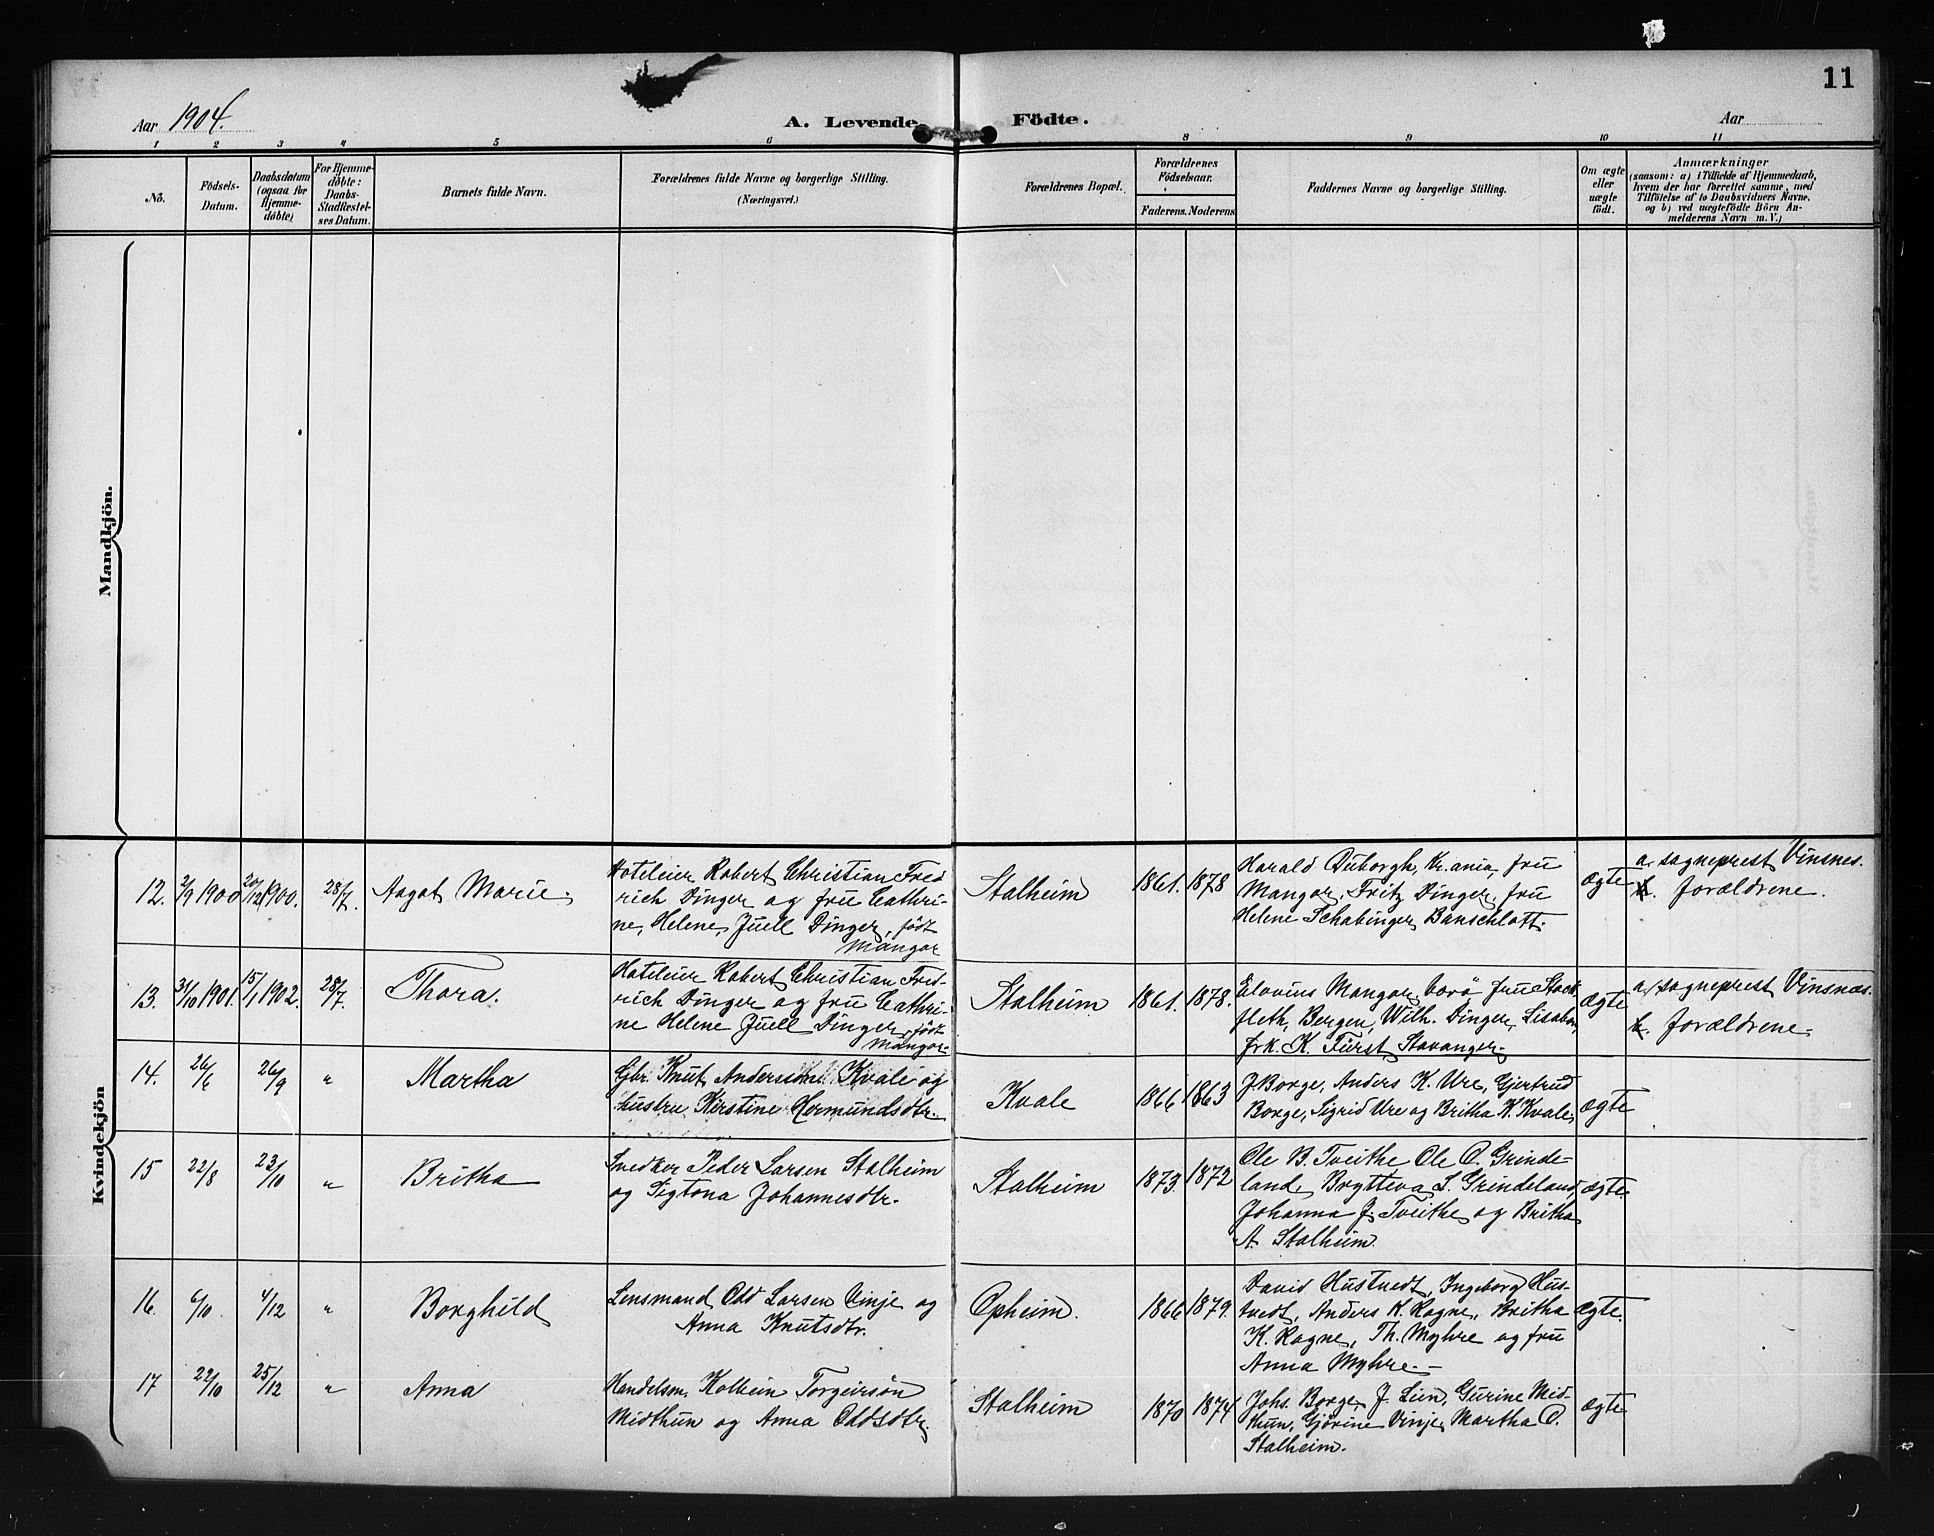 11
Aar 1904.
A. Levende Födte.
Aar
1 2 3 4 5 6 8 9 10 11
No.
Födsels-Datum.
Daabsdatum (ogsaa for Hjemmedöbte)
For Hjemmedöbte: Daabs-Stadfæstelses Datum.
Barnets fulde Navn.
Forældrenes fulde Navne og borgerlige Stilling.
(Næringsvei.)
Forældrenes Bopæl.
Forældrenes Födselsaar.
Faderens. Moderens
Faddernes Navne og borgerlige Stilling.
Om ægte eller uægte födt.
Anmærkninger
(saasom: a) i Tilfælde af Hjemmedaab,
hvem der har forrettet samme, med
Tilföielse af to Daabsvidners Navne.
og b) ved uægtefödte Börn Anmelderens Navn m. V.)
Mandkjön.
Kvindekjön
12. 2/9 1900 20/12 1900. 28/7. Aagot Marie.
Hoteleier Robert Christian Fred
rich Dinger og fru Cathri-
ne, Helene, Juell Dinger, født
Mangor
Stalheim 1861. 1878
Harald Duborgh, Kr.ania, fru
Mangor, Fritz Dinger, fru
Helene Schabinger Banschlott.
ægte
a. sogneprest Vinsnes.
b. Forældrene.
13. 31/10 1901. 15/1 1902. 28/7. Thora.
Hoteleier Robert Christian Fred-
rich Dinger og fru Cathri-
ne Helene Juell Dinger, født
Mangor.
Stalheim 1861. 1878.
Elovius Mangor, fru Stock
fleth, Bergen, Wilh. Dinger, Lisabon,
frk. K. Fürst, Stavanger.
ægte
a. sogneprest Vinsnæs.
b. Forældrene.
14. 26/6 26/9 " Martha
Gbr. Knut Anderssøn Kvale og
hustru Kerstine Hermundsdtr.
Kvale 1866 1863
J Borge, Anders K. Ure, Gjertrud
Borge, Sigrid Ure og Britha K. Kvale.
ægte
15 22/8 23/10 " Britha
Snedker Peder Larsen Stalheim
og Sigtona Johannesdtr.
Stalheim 1873. 1872
Ole B. Tveithe Ole O. Grinde-
land, Brytteva S. Grindeland,
Johanna J. Tveithe og Britha
A. Stalheim.
ægte.
16. 6/10 4/12 " Borghild
Lensmand Odd Larsen Vinje og
Anna Knutsdtr.
Opheim. 1866 1879.
David Hustvedt, Ingeborg Hus-
tvedt, Anders K. Rogne, Britha
K. Rogne, Th. Myhre og fru
Anna Myhre. -
ægte.
17 22/10 25/12 " Anna
Handelsm. Kolbein Torgeirsøn
Midthun og Anna Oddsdtr.
Stalheim 1870 1874
Johs. Borge, J. Lien, Gurine Mid-
thun, Gjørine Vinje, Martha O.
Stalheim.
ægte